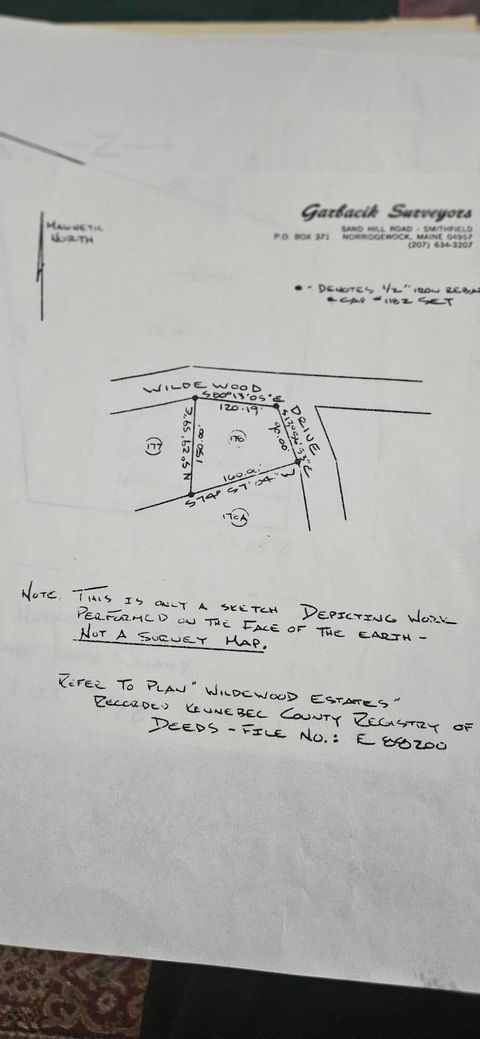 Garbacik Surveyors
SAND HILL ROAD - SMITHFIELD
P.O. BOX 371 NORRIDGEWOCK, MAINE 04957
(207) 634-3207
MAGNETIC
NORTH
- DENOTES 1/2" IRON REBAR
& CAP #1182 SET
WILDEWOOD
DRIVE
S80°13'05"E
120.19'
90.00'
150.00'
160.0'
177
176
NOTE: THIS IS ONLY A SKETCH DEPICTING WORK
PERFORMED ON THE FACE OF THE EARTH -
NOT A SURVEY MAP.
REFER TO PLAN "WILDEWOOD ESTATES"
RECORDED KENNEBEC COUNTY REGISTRY OF
DEEDS - FILE NO.: E 88200